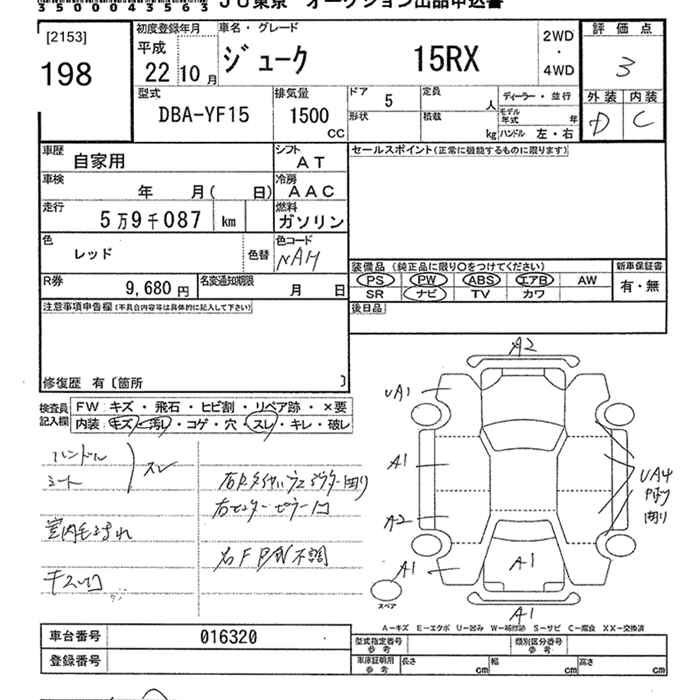 35000435563
JU東京 オークション出品申込書
[2153]
198
初度登録年月
平成
22 10月
車名・グレード
ジューク 15RX
2WD
・
4WD
評価点
3
外装 内装
D C
型式
DBA-YF15
排気量
1500
CC
ドア 5
形状
定員 人
積載 kg
ディーラー・並行
モデル年式 年
ハンドル 左・右
車歴
自家用
シフト
AT
セールスポイント(正常に機能するものに限ります)
車検
年 月( 日)
冷房
AAC
走行
5万9千087 km
燃料
ガソリン
色
レッド
色替
色コード
NAH
装備品(純正品に限り○をつけてください)
PS PW ABS エアB AW
SR ナビ TV カワ
新車保証書
有・無
R券
9,680円
名変通知期限
月 日
後日品
注意事項申告欄(不具合内容等は具体的に記入して下さい)
修復歴 有〔箇所 〕
検査員記入欄
FW キズ・飛石・ヒビ割・リペア跡・×要
内装 キズ・汚し・コゲ・穴・スレ・キレ・破レ
ハンドル
シート
スレ
右センターピラー凹
右F P/W不調
A2
UA1
A1
A2
A1
A1
A1
UA4
スペア
A−キズ E−エクボ U−凹み W−補修跡 S−サビ C−腐食 XX−交換済
車台番号 016320
登録番号
型式指定番号
参考
類別区分番号
参考
車庫証明用
参考
長さ cm 幅 cm 高さ cm